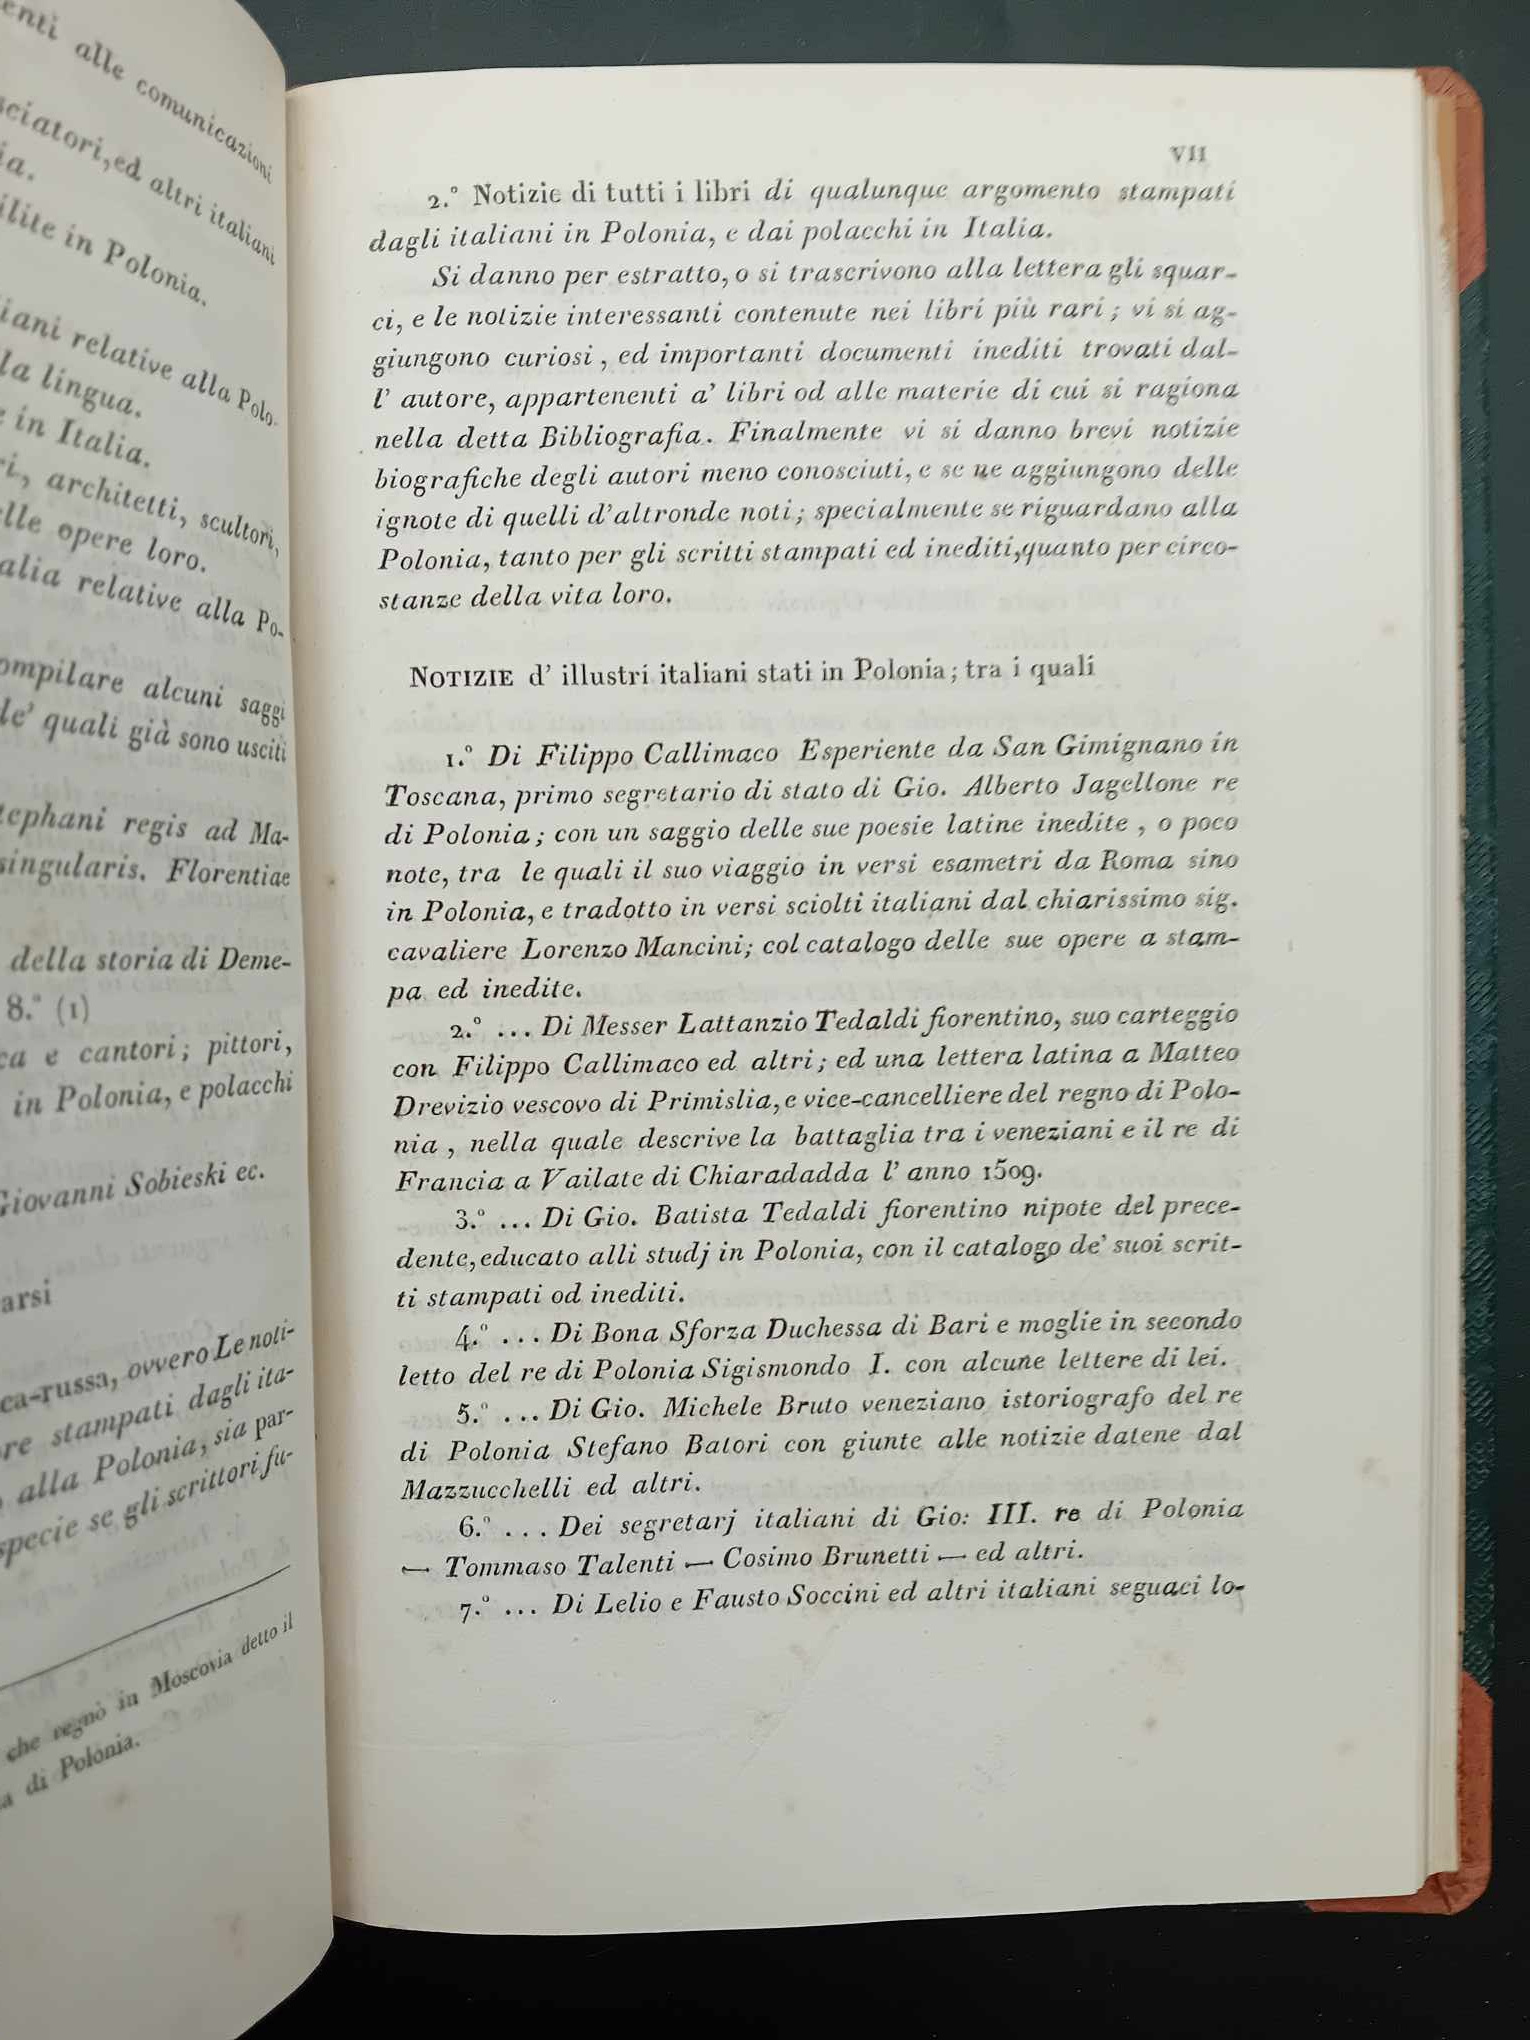 enti alle comunicazioni
sciatori, ed altri italiani
ia.
ilite in Polonia.
iani relative alla Polo-
la lingua.
e in Italia.
ri, architetti, scultori,
elle opere loro.
alia relative alla Po-
ompilare alcuni saggi
de' quali già sono usciti
tephani regis ad Ma-
singularis. Florentiae
della storia di Deme-
8.° (1)
ca e cantori; pittori,
in Polonia, e polacchi
Giovanni Sobieski ec.
arsi
ca-russa, ovvero Le noti-
ore stampati dagli ita-
alla Polonia, sia par-
specie se gli scrittori fu-
che regnò in Moscovia detto il
a di Polonia.
VII
2.° Notizie di tutti i libri di qualunque argomento stampati
dagli italiani in Polonia, e dai polacchi in Italia.
Si danno per estratto, o si trascrivono alla lettera gli squar-
ci, e le notizie interessanti contenute nei libri più rari; vi si ag-
giungono curiosi, ed importanti documenti inediti trovati dal-
l' autore, appartenenti a' libri od alle materie di cui si ragiona
nella detta Bibliografia. Finalmente vi si danno brevi notizie
biografiche degli autori meno conosciuti, e se ne aggiungono delle
ignote di quelli d'altronde noti; specialmente se riguardano alla
Polonia, tanto per gli scritti stampati ed inediti, quanto per circo-
stanze della vita loro.
NOTIZIE d' illustri italiani stati in Polonia; tra i quali
1.° Di Filippo Callimaco Esperiente da San Gimignano in
Toscana, primo segretario di stato di Gio. Alberto Jagellone re
di Polonia; con un saggio delle sue poesie latine inedite, o poco
note, tra le quali il suo viaggio in versi esametri da Roma sino
in Polonia, e tradotto in versi sciolti italiani dal chiarissimo sig.
cavaliere Lorenzo Mancini; col catalogo delle sue opere a stam-
pa ed inedite.
2.° ... Di Messer Lattanzio Tedaldi fiorentino, suo carteggio
con Filippo Callimaco ed altri; ed una lettera latina a Matteo
Drevizio vescovo di Primislia, e vice-cancelliere del regno di Polo-
nia, nella quale descrive la battaglia tra i veneziani e il re di
Francia a Vailate di Chiaradadda l' anno 1509.
3.° ... Di Gio. Batista Tedaldi fiorentino nipote del prece-
dente, educato alli studj in Polonia, con il catalogo de' suoi scrit-
ti stampati od inediti.
4.° ... Di Bona Sforza Duchessa di Bari e moglie in secondo
letto del re di Polonia Sigismondo I. con alcune lettere di lei.
5.° ... Di Gio. Michele Bruto veneziano istoriografo del re
di Polonia Stefano Batori con giunte alle notizie datene dal
Mazzucchelli ed altri.
6.° ... Dei segretarj italiani di Gio: III. re di Polonia
— Tommaso Talenti — Cosimo Brunetti — ed altri.
7.° ... Di Lelio e Fausto Soccini ed altri italiani seguaci lo-